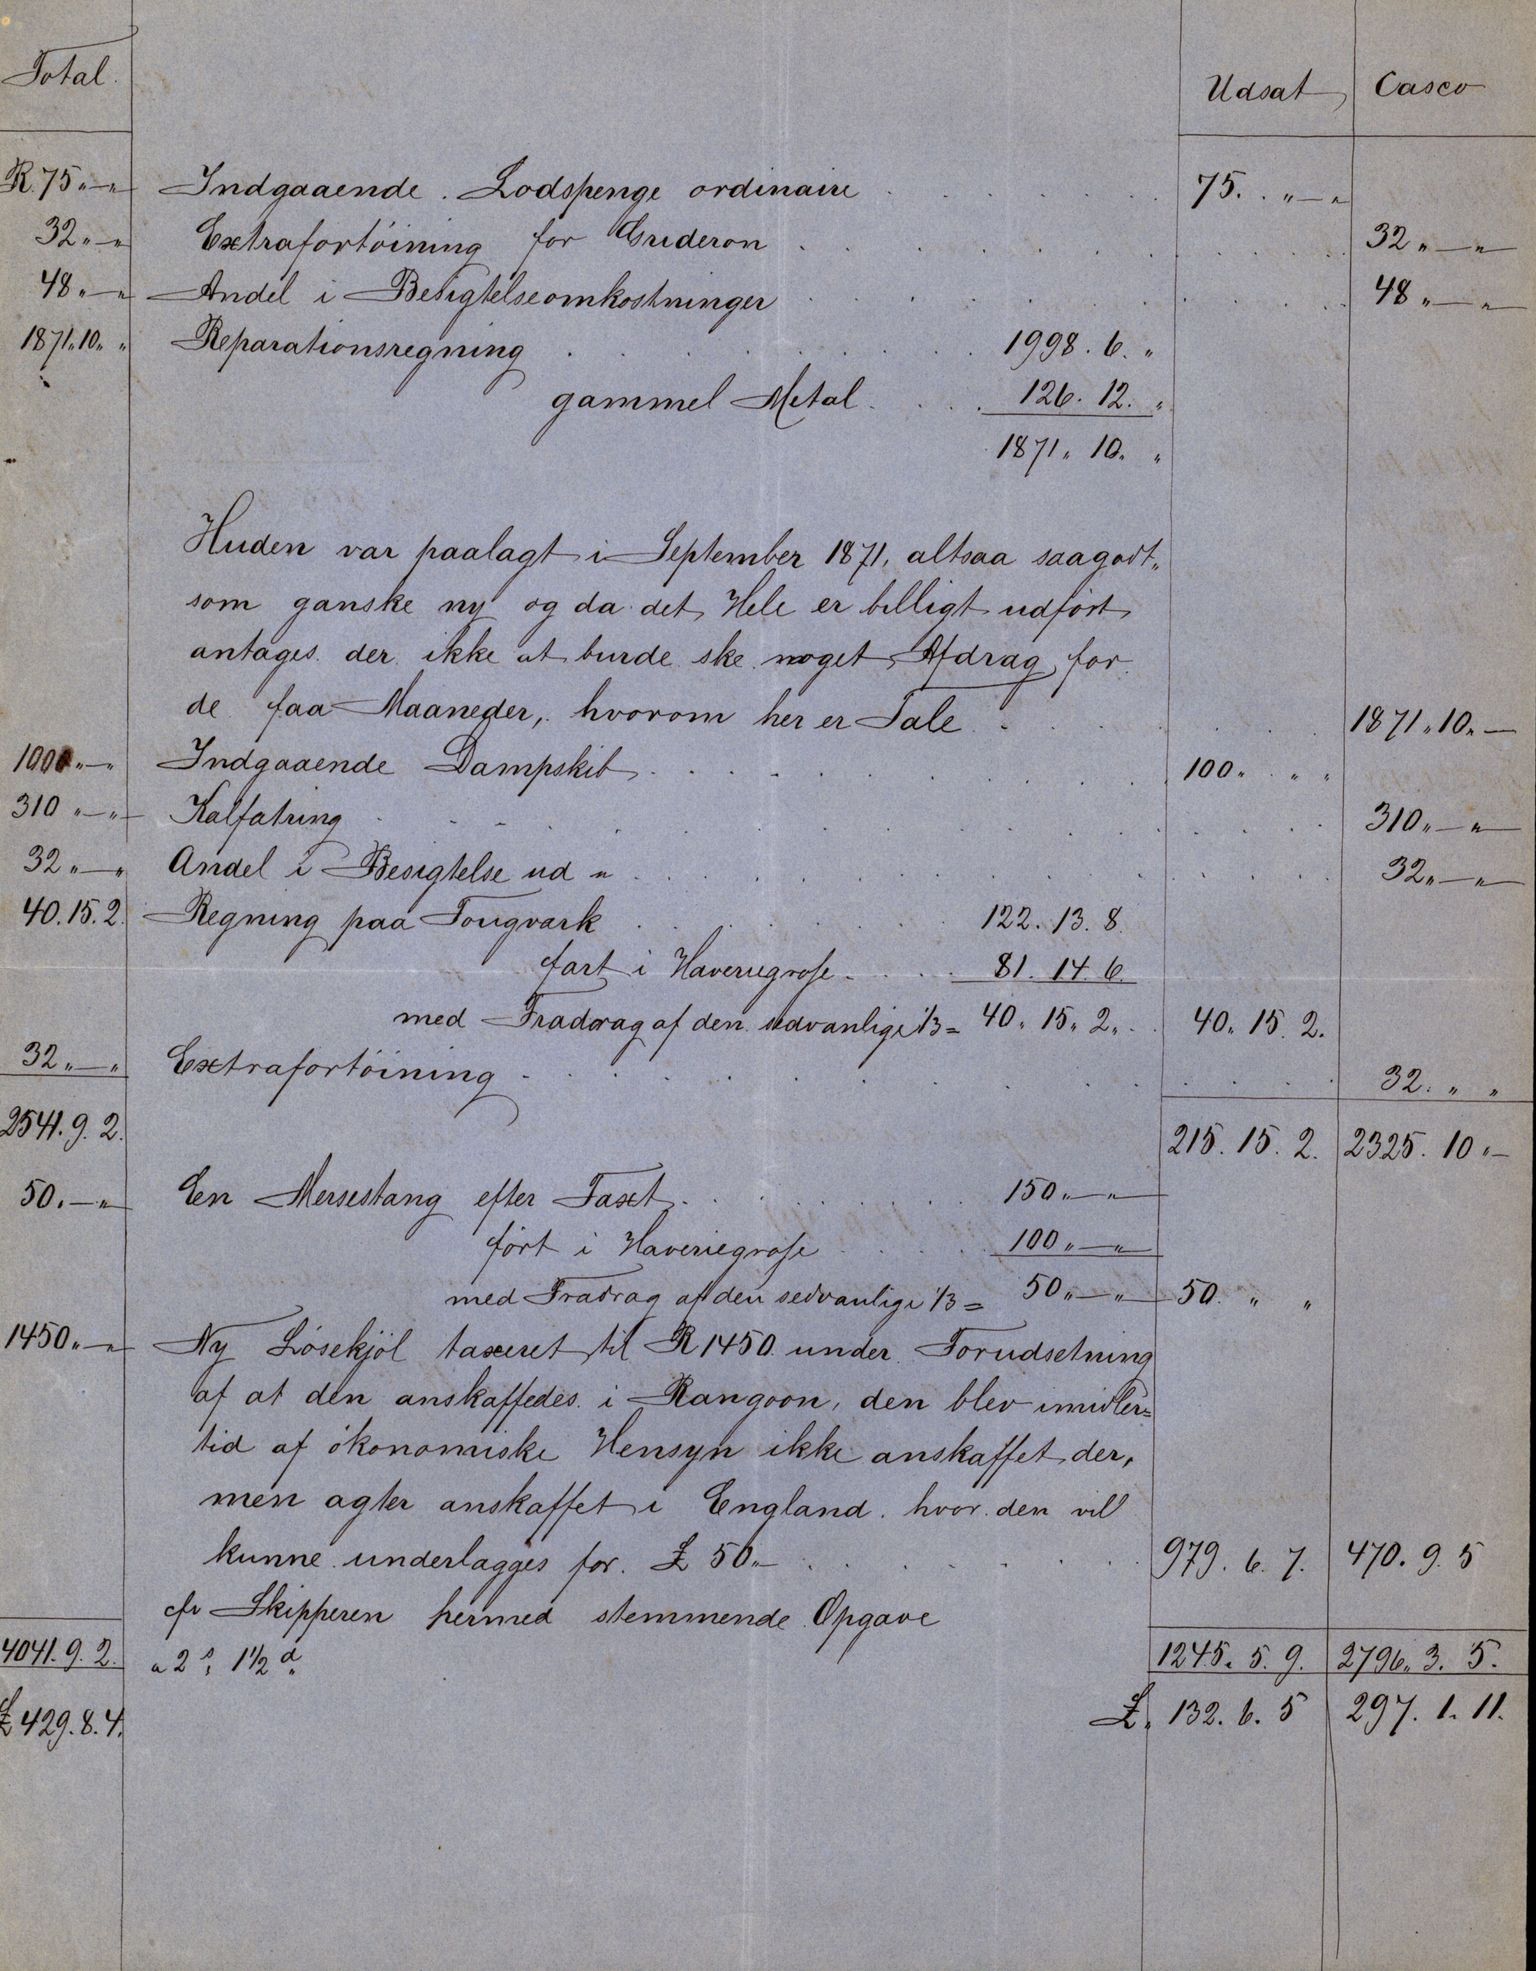 Total. Udsat Casco
R. 75 „ — „ Indgaaende . Lodspenge ordinaire 75. . „ — „
32 „ — „ Extrafortöining for Grideron 32 „ — „
48 „ — „ Andel i Besigtelseomkostninger 48 „ — „
1871 „ 10 „ „ Reparationsregning 1998 . 6 . „
gammel Metal 126 . 12 . „
1871 „ 10 „ „
Huden var paalagt i September 1871, altsaa saagodt„
som ganske ny og da det Hele er billigt udfört
antages der ikke at burde ske noget Afdrag for
de faa Maaneder, hvorom her er Tale 1871 „ 10 „ —
100 „ — „ Indgaaende Dampskib 100 „ „ „
310 „ — „ Kalfatring 310 „ — „
32 „ — „ Andel i Besigtelse ud „ 32 „ — „
40. 15. 2. Regning paa Tougvark 122 . 13 . 8.
fört i Haveriegrosse 81 . 14 . 6.
med Fradrag af den sedvanlige 1/3 = 40 „ 15 „ 2 „ 40 „ 15. 2.
32 „ — „ Extrafortöining 32 . „ „
2541. 9. 2. 215 . 15 . 2. 2325. 10 „ —
50. — „ En Mersestang efter Taxt 150 „ — „
fört i Haveriegrosse 100 „ — „
med Fradrag af den sedvanlige 1/3 = 50 „ — „ 50. „ „
1450 „ — „ Ny Lösekjöl taxeret til R 1450 under Forudsetning
af at den anskaffedes i Rangoon, den blev imidler=
tid af ökonomiske Hensyn ikke anskaffet der,
men agter anskaffet i England . hvor den vill
kunne underlagges for. £ 50 „ — 979 . 6 . 7. 470 . 9. 5
cfr Skipperen hermed stemmende Opgave
4041. 9. 2. a 2 s, 1 1/2 d „ 1245. 5. 9. 2796 „ 3. 5.
£ 429. 8. 4. £. 132. 6. 5 297. 1. 11.